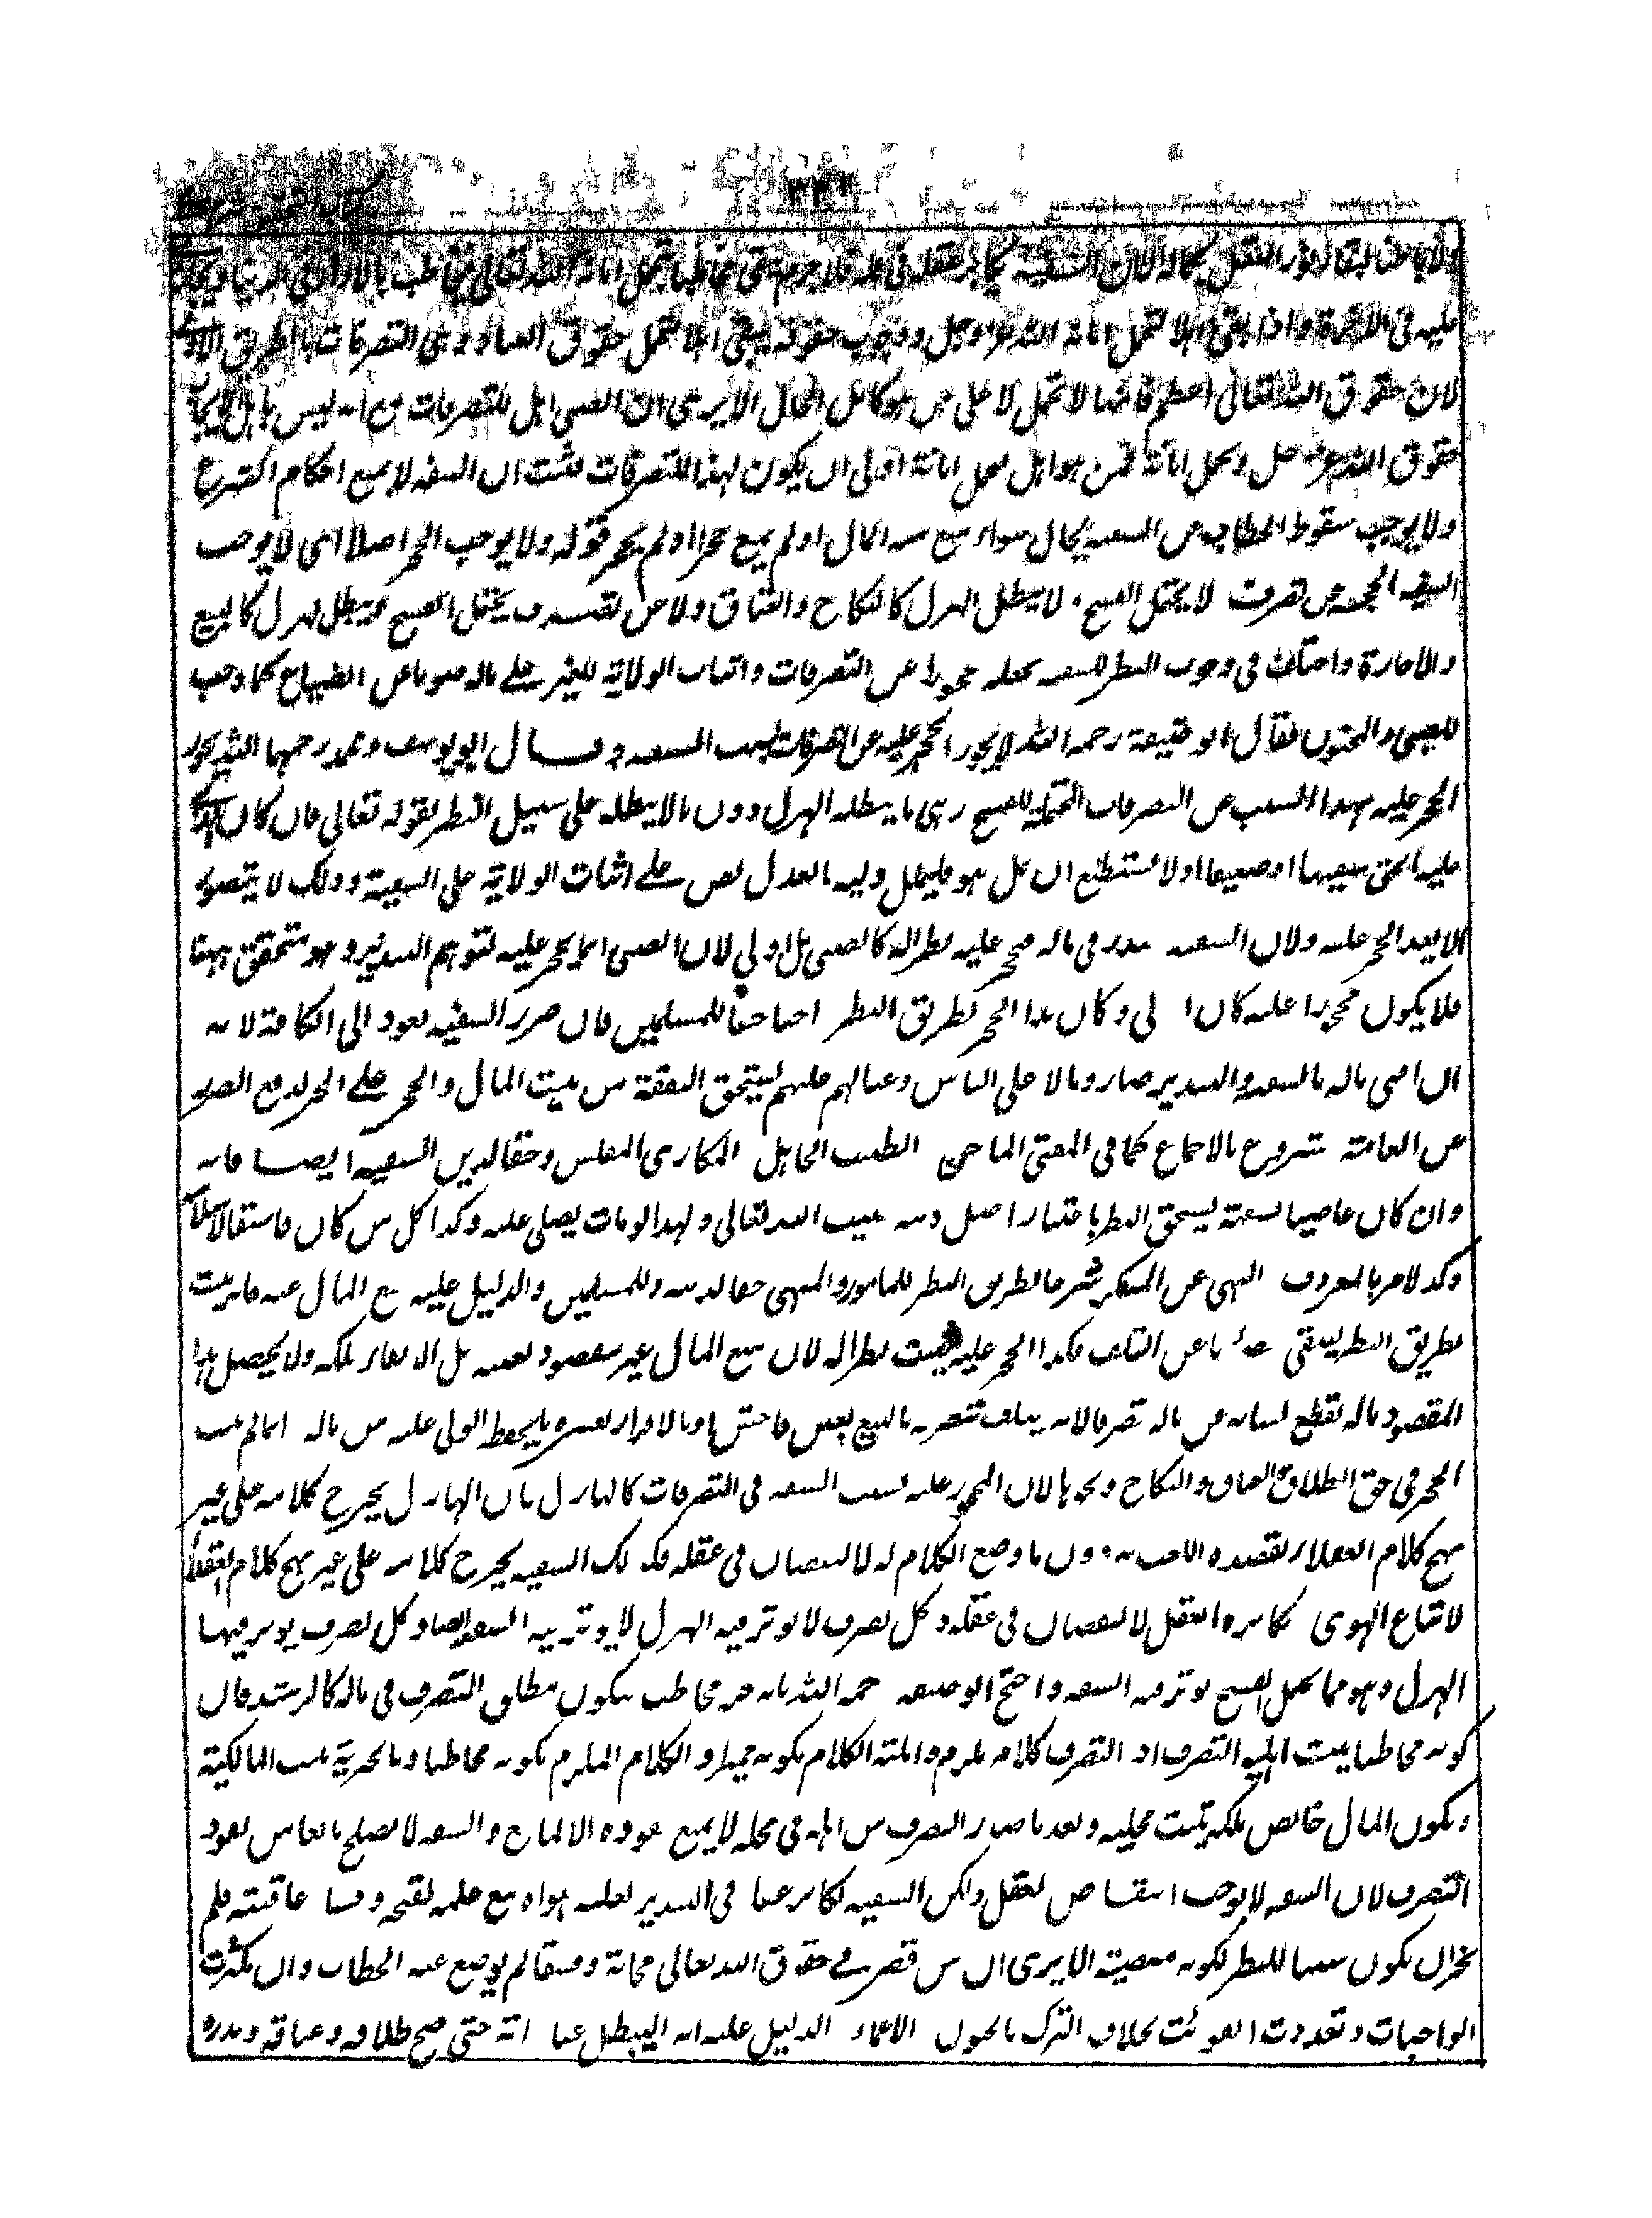 ولا باطنا لبقاء نور العقل بكماله الا ان السفيه يكابر عقله فى عمله فلا جرم يبقى مخاطبا بتحمل امانة الله تعالى فيخاطب بالاداء فى الدنيا ويجازى
عليه فى الآخرة واذا بقى اهلا لتحمل امانة الله عز وجل ووجوب حقوقه يبقى اهلا لتحمل حقوق العباد وهى التصرفات بالطريق الاولى
لان حقوق الله تعالى اعظم فانها لا تحمل الا على من هو كامل الحال الا يرى ان الصبى اهل للتصرفات مع انه ليس باهل لايجاب
حقوق الله عز وجل وتحمل امانته فمن هو اهل لتحمل امانته اولى ان يكون لهذا التصرفات فثبت ان السفه لا يمنع احكام الشرع
ولا يوجب سقوط الخطاب عن السفيه بحال سواء منع منه المال او لم يمنع حجر او لم يحجر قوله ولا يوجب الحجر اصلا اى لا يوجب
السفه الحجر عن تصرف لا يحتمل الفسخ ولا يبطله الهزل كالنكاح والعتاق ولا عن تصرف يحتمل الفسخ ويبطله الهزل كالبيع
والاجارة واختلف فى وجوب النظر للسفيه بجعله محجورا عن التصرفات واثبات الولاية للغير على ماله صونا عن الضياع كما وجب
للصبى والمجنون فقال ابو حنيفة رحمه الله لا يجوز الحجر عليه عن التصرفات بسبب السفه وقال ابو يوسف ومحمد رحمهما الله يجوز
الحجر عليه بهذا السبب عن التصرفات المحتملة للفسخ وهى ما يبطله الهزل دون ما لا يبطله على سبيل النظر لقوله تعالى فان كان الذى
عليه الحق سفيها او ضعيفا او لا يستطيع ان يمل هو فليملل وليه بالعدل نص على اثبات الولاية على السفيه وذلك لا يتصور
الا بعد الحجر عليه ولان السفيه مبذر فى ماله فيحجر عليه نظرا له كالصبى بل اولى لان الصبى انما يحجر عليه لتوهم التبذير وهو متحقق ههنا
فلا يكون محجورا عليه كان ا لى وكان هذا الحجر بطريق النظر احنا حقا للمسلمين فان ضرر السفيه يعود الى الكافة لانه
ان افنى ماله بالسفه والتبذير صار وبالا على الناس وعيالهم عليهم ليستحق النفقة من بيت المال والحجر على الحر لدفع الضرر
عن العامة مشروع بالاجماع كما فى المفتى الماجن الطبيب الجاهل المكارى المفلس وحقا لدين السفيه ايضا فانه
وان كان عاصيا لسفهه يستحق النظر باعتبار اصل دينه حبيب الله تعالى ولهذا لو مات يصلى عليه وكذا كل من كان فاسقا لاسلامه
وكذا الامر بالمعروف النهى عن المنكر شرعا بطريق النظر للمامور والمنهى حقا لدينه وللمسلمين والدليل عليه منع المال عنه فانه يثبت
بطريق النظر ليبقى مصونا عن التلف فكذا الحجر عليه يثبت نظرا له لان منع المال غير مقصود لعينه بل لابقاء ملكه ولا يحصل هذا
المقصود ماله يقطع لسانه عن ماله تصرفا لانه يتلف بتصرفه بالبيع بغبن فاحش او بالاقرار لغيره ما يحفظ الولى عليه من ماله انما لم يثبت
الحجر فى حق الطلاق والعتاق والنكاح ونحوها لان المحجور عليه بسبب السفه فى التصرفات كالهازل فان الهازل يخرج كلامه على غير
نهج كلام العقلاء لقصده اللعب به دون ما وضع الكلام له لا لنقصان فى عقله فكذلك السفيه يخرج كلامه على غير نهج كلام العقلاء
لاتباع الهوى مكابرة العقل لا لنقصان فى عقله وكل تصرف لا يوثر فيه الهزل لا يوثر فيه السفه ايضا وكل تصرف يوثر فيها
الهزل وهو مما يحتمل الفسخ يوثر فيه السفه واحتج ابو حنيفة رحمه الله بانه حر مخاطب فيكون مطلق التصرف فى ماله كالرشيد فان
كونه مخاطبا يثبت اهلية التصرف اذ التصرف كلام ملزم واهلية الكلام بكونه مميزا والكلام الملزم بكونه مخاطبا وبالحرية يثبت المالكية
وبكون المال خالص ملكه يثبت محليته وبعد ما صدر التصرف من اهله فى محله لا يمنع نفوذه الا لمانع والسفه لا يصلح مانعا من نفوذ
التصرف لان السفه لا يوجب انتقاص لعقل ولكن السفيه يكابر عقله فى التبذير لغلبة هواه مع علمه بقبحه وفساد عاقبته فلم
يجز ان يكون سببا للنظر لكونه معصية الا يرى ان من قصر فى حقوق الله تعالى مجانة وفسقا لم يوضع عنه الخطاب وان كثرت
الواجبات وتعددت الفوائت بخلاف الترك بالجنون الاغماء الدليل عليه انه ليبطل عبا اته حتى صح طلاقه وعتاقه ونذره